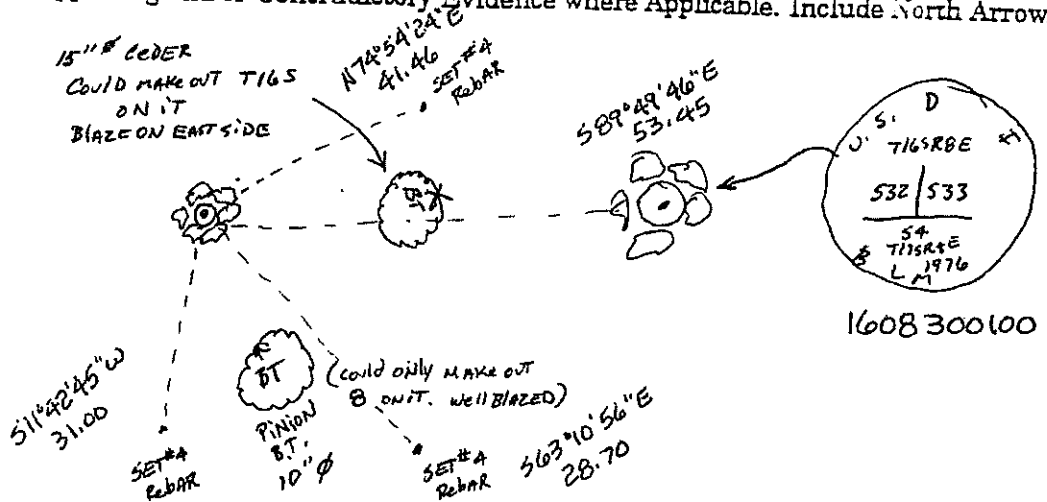 Contradictory Evidence where Applicable. Include North Arrow
15" ø CEDER
COULD MAKE OUT T16S
ON IT
BLAZE ON EAST SIDE
N74°54'24"E
41.46
SET #4
RebAR
S89°49'46"E
53.45
U. S. D I
T16SR8E
S32 S33
S4
T17SR8E
B L M 1976
1608300100
BT
S11°42'45"W
31.00
SET #4
RebAR
BT
PINION
B.T.
10" ø
(could only MAKE OUT
8 ON IT. Well BLAZED)
SET #4
RebAR
S63°10'56"E
28.70